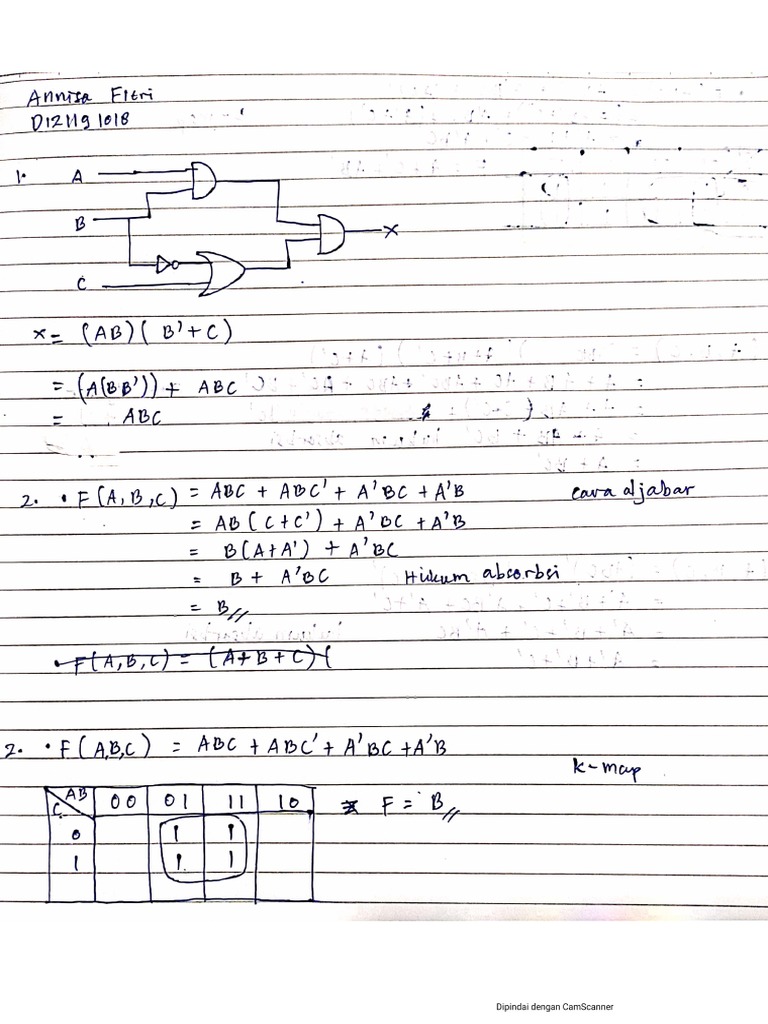 Annisa Fitri
D121191018
1. A
B
C
X
x = (AB)( B' + C)
= (A(BB')) + ABC
= ABC
2. • F(A,B,C) = ABC + ABC' + A'BC + A'B cara aljabar
= AB(C+C') + A'BC + A'B
= B(A+A') + A'BC
= B + A'BC Hukum absorbsi
= B//
• F(A,B,C) = (A+B+C)(
2. • F(A,B,C) = ABC + ABC' + A'BC + A'B
k-map
AB 00 01 11 10 F = B//
C
0 1 1
1 1 1
Dipindai dengan CamScanner